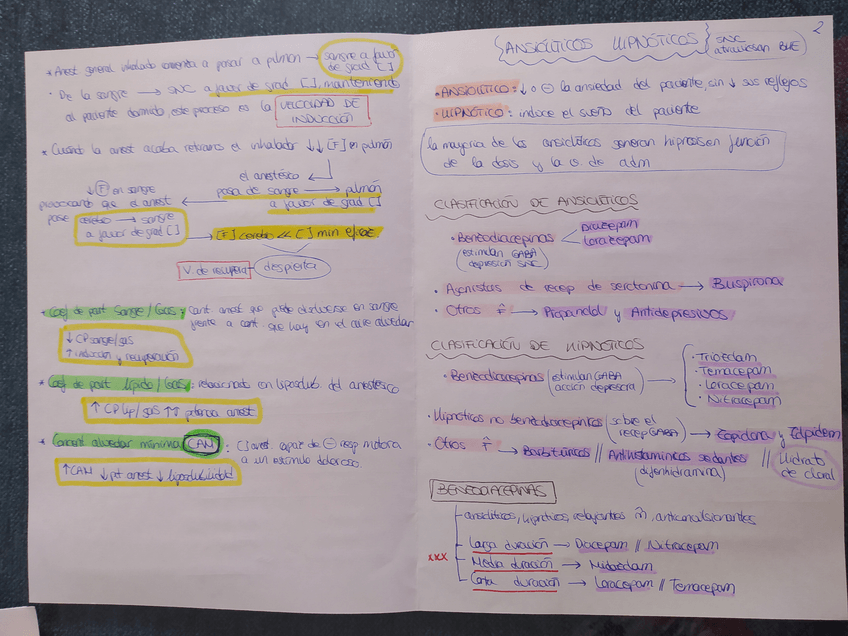 * Anest general inhalado comienza a pasar a pulmón → sangre a favor
de grad []
· De la sangre → SNC a favor de grad [], manteniendo
al paciente dormido, este proceso es la VELOCIDAD DE
INDUCCIÓN
* Cuando la anest acaba retiramos el inhalador ↓↓ [F] en pulmón
el anestésico
pasa de sangre → pulmón
a favor de grad []
↓ F en sangre
provocando que el anest
pase cerebro → sangre
a favor de grad []
→ [F] cerebro << [] min eficaz
V. de recupera despierta
* Coef de part Sangre/Gas: cant. anest que puede disolverse en sangre
frente a cant. que hay en el aire alveolar
↓ CP sangre/gas
↑ inducción y recuperación
* Coef de part lípido/Gas: relacionado con liposolub. del anestésico
↑ CP lip/gas ↑↑ potencia anest
* Concent alveolar mínima CAM: [] anest capaz de ⊖ resp motora
a un estímulo doloroso.
↑ CAM ↓ pot anest ↓ liposolubilidad
2
ANSIOLÍTICOS HIPNÓTICOS SNC
atraviesan BHE
· ANSIOLÍTICO: ↓ o ⊖ la ansiedad del paciente, sin ↓ sus reflejos
· HIPNÓTICO: induce el sueño del paciente
la mayoría de los ansiolíticos generan hipnosis en función
de la dosis y la v. de adm
CLASIFICACIÓN DE ANSIOLÍTICOS
· Benzodiacepinas Diacepam
Loracepam
(estimulan GABA
depresión SNC)
· Agonistas de recep de serotonina → Buspirona
· Otros f̂ → Propanolol y Antidepresivos
CLASIFICACIÓN DE HIPNÓTICOS
· Benzodiacepinas (estimulan GABA
acción depresora) →
· Triozolam
· Temacepam
· Loracepam
· Nitracepam
· Hipnóticos no benzodiacepínicos (sobre el
recep GABA) → Zopiclona y Zolpidem
· Otros f̂ → Barbitúricos // Antihistamínicos sedantes // Hidrato
(difenhidramina) de cloral
BENZODIACEPINAS
ansiolíticos, hipnóticos, relajantes m̂, anticonvulsionantes
Larga duración → Diacepam // Nitracepam
xxx Media duración → Midazolam
Corta duración → Loracepam // Temacepam